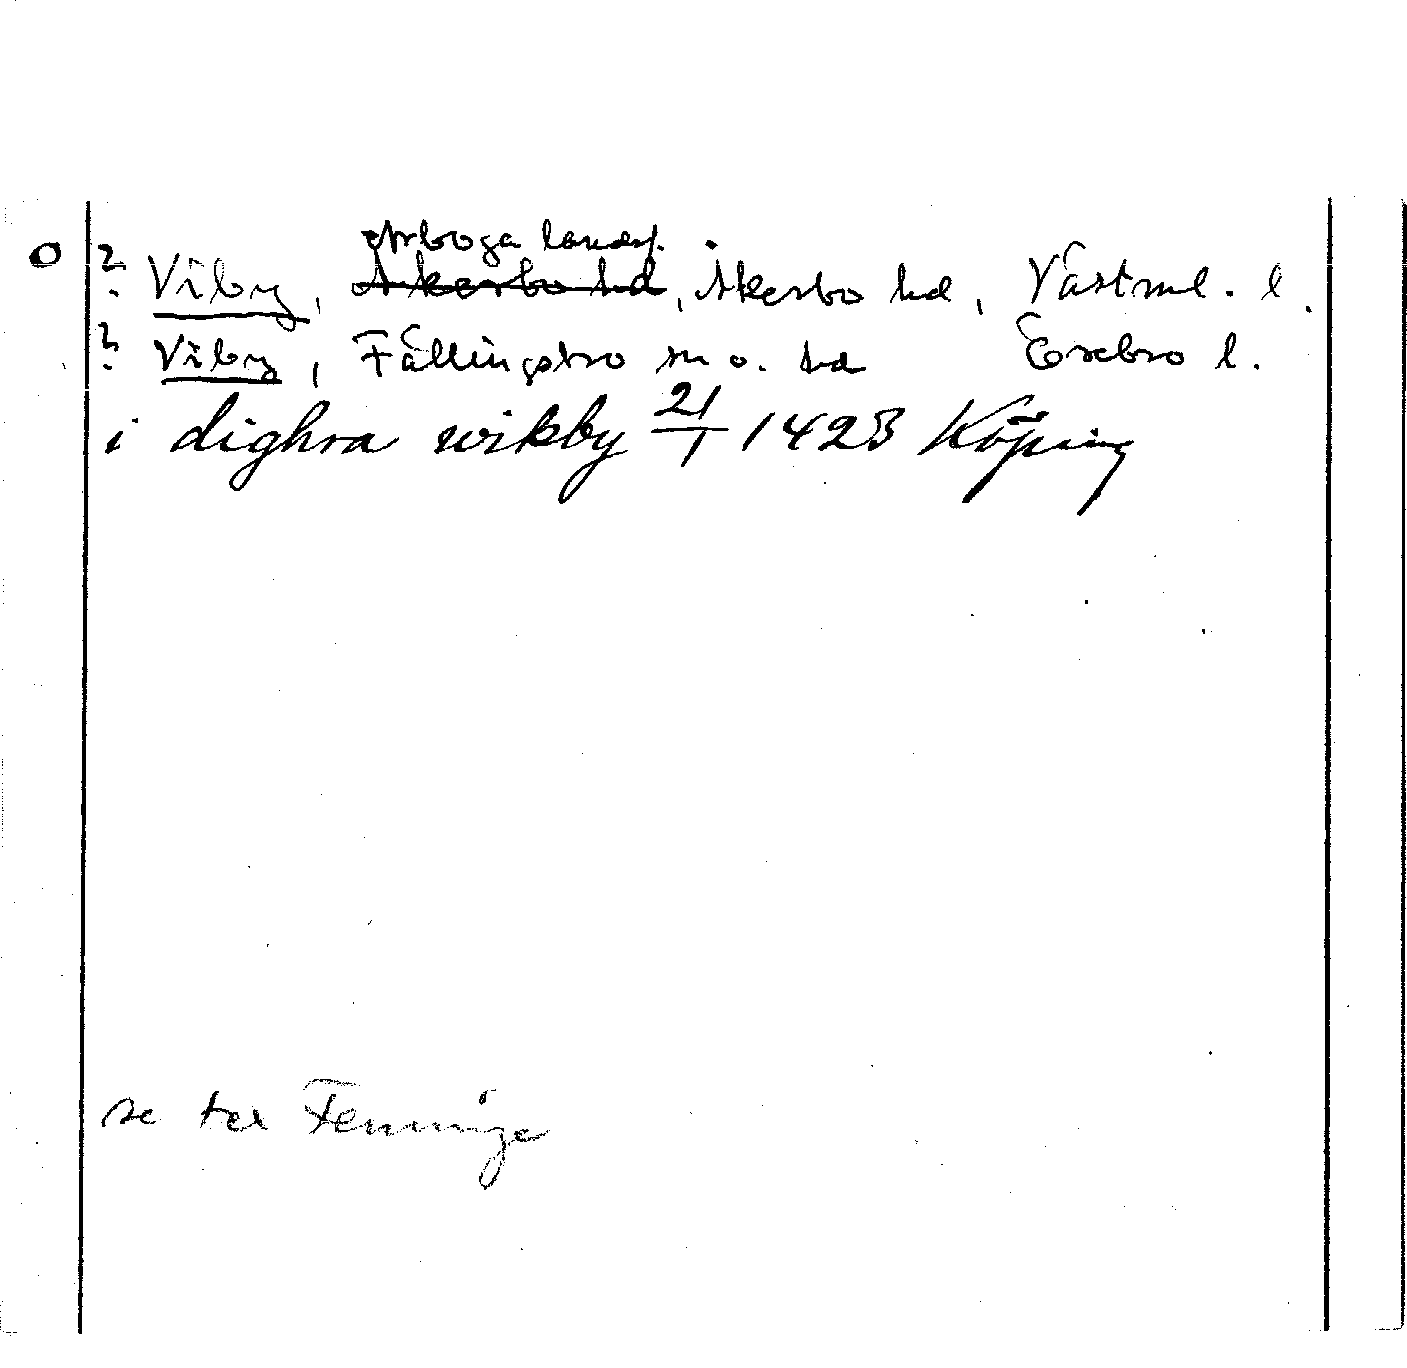 Arboga landsf.
O ? Viby, Åkerbo hd, Åkerbo hd, Västml. l.
? Viby, Fällingsbro sn o. hd Örebro l.
i dighra wikby 21/1 1423 Köping
se ter Femminge